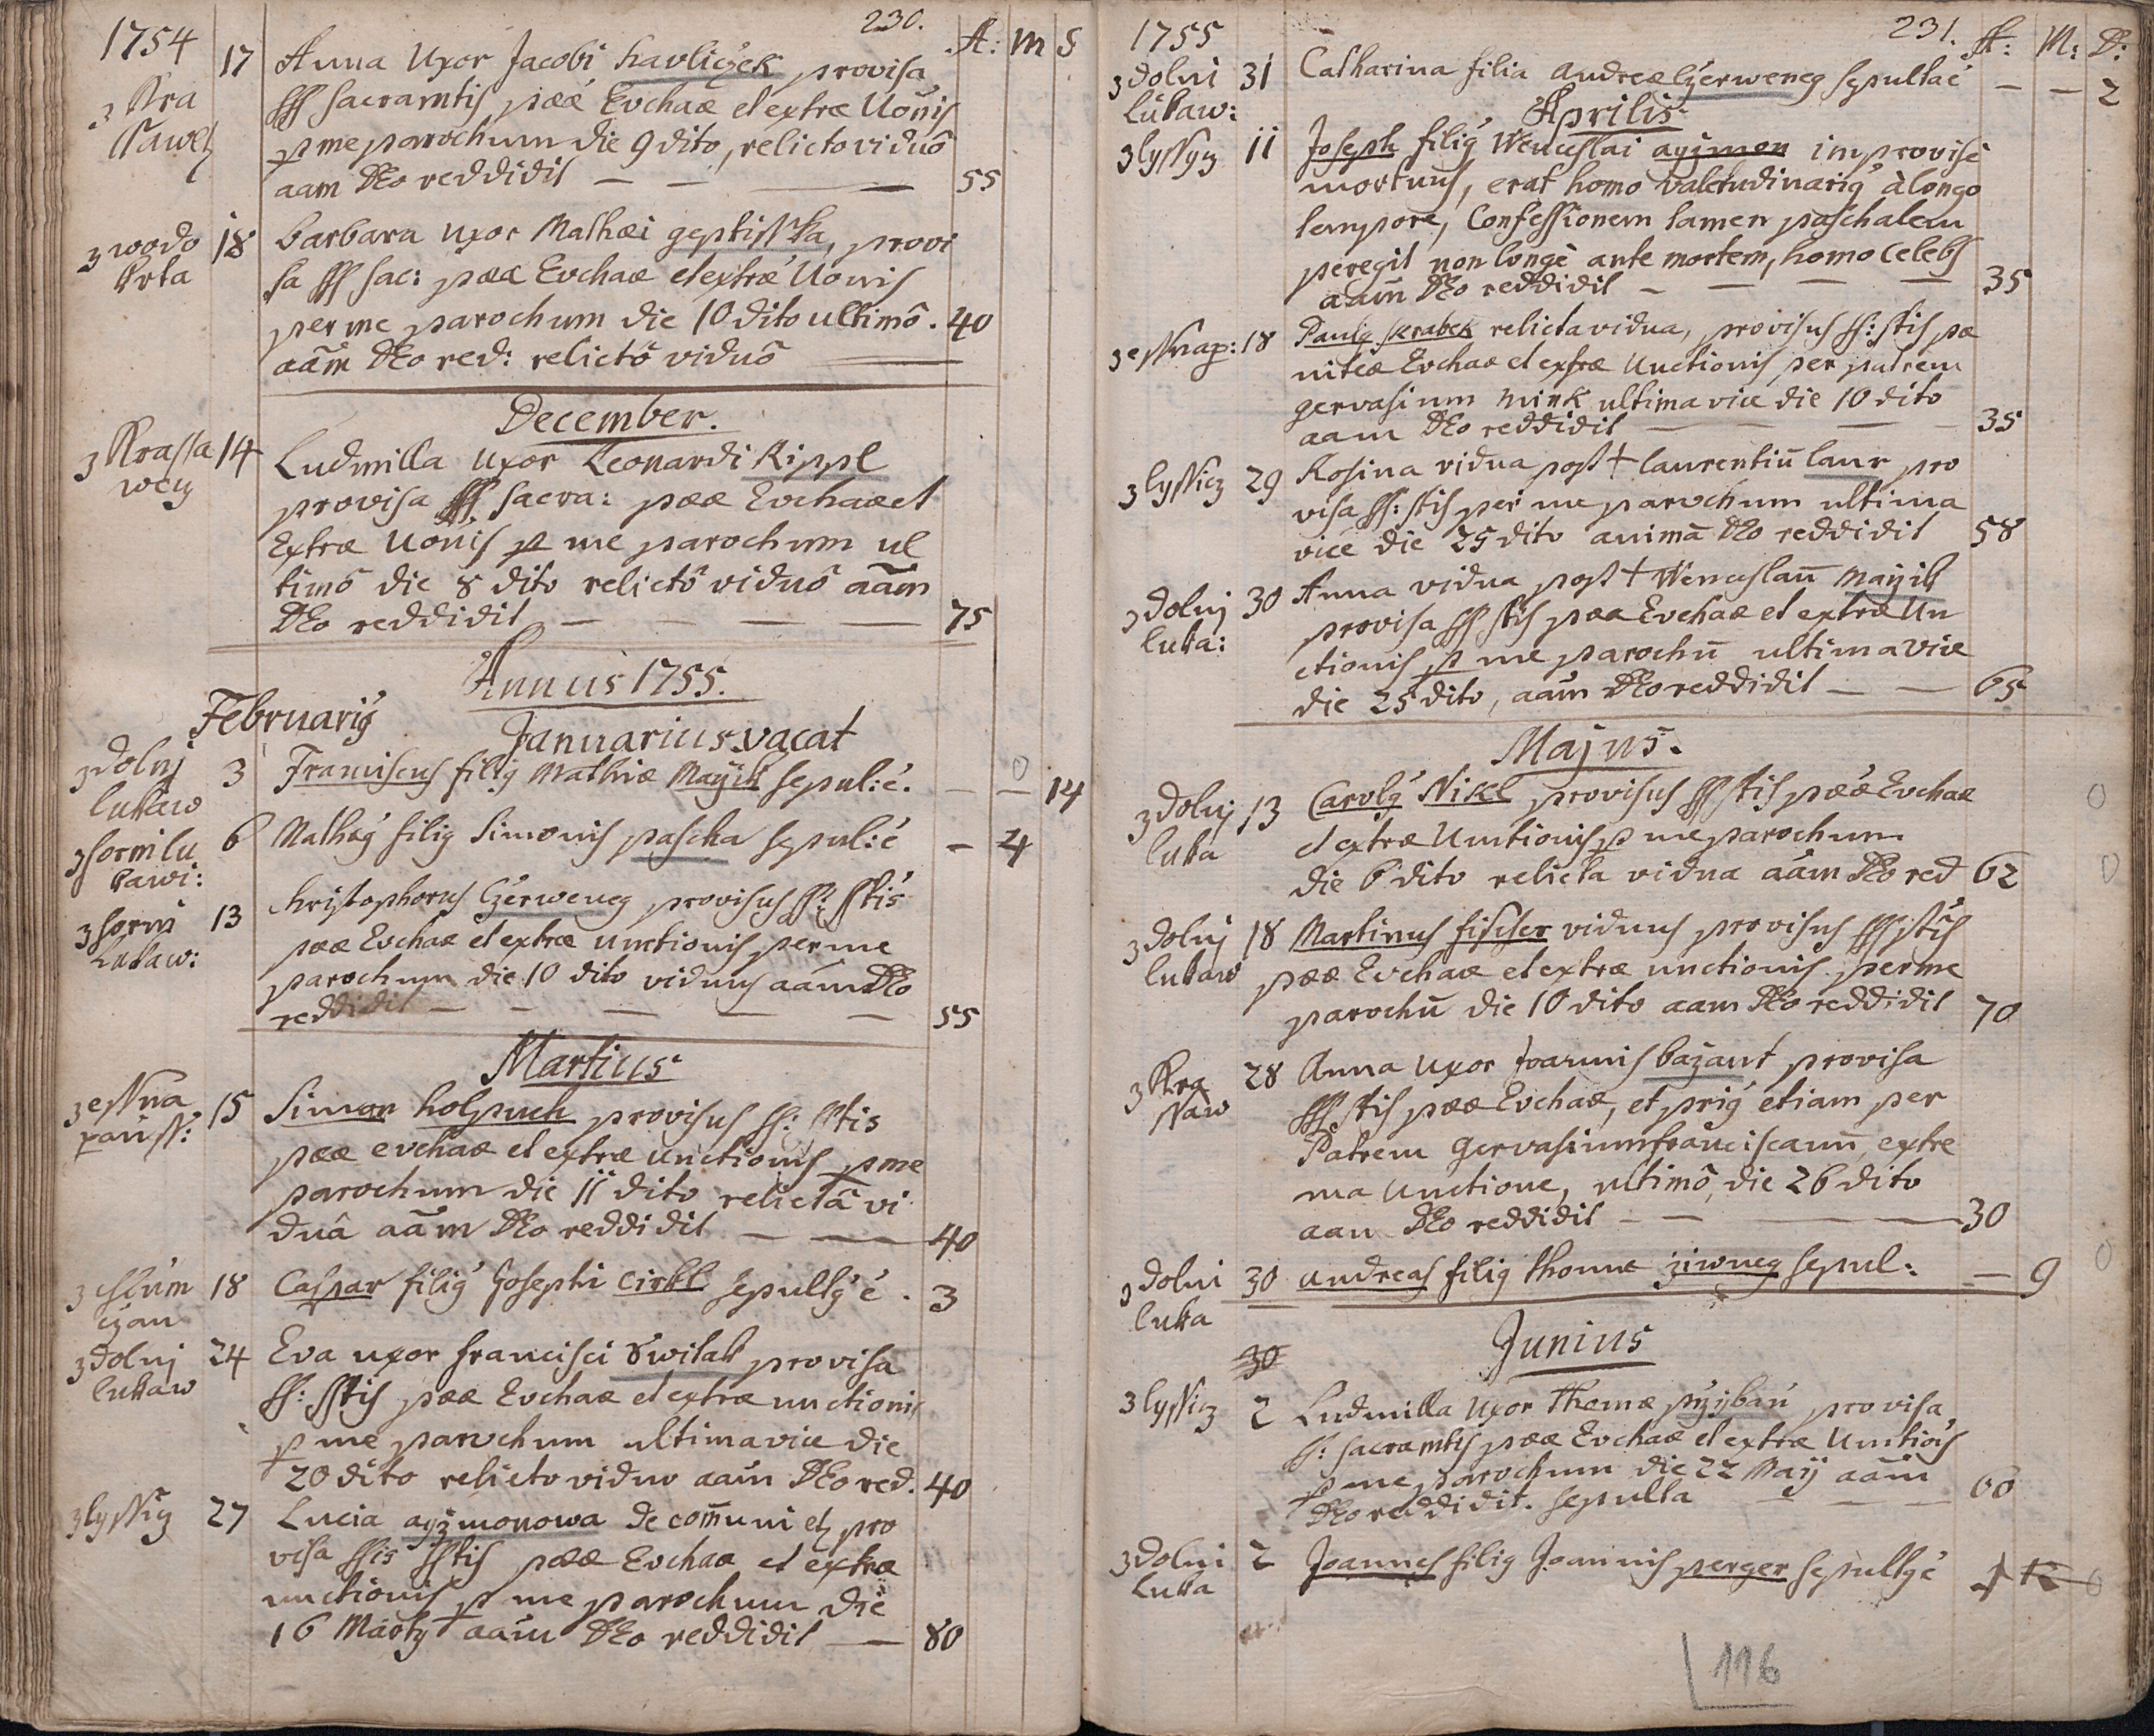 1754
230.
A: M S
z Kra
ssawecz
17
Anna Uxor Jacobi havliczek provisa
SSS sacramtis pææ Evchaæ et extræ Uönis
p me parochum die 9 dito, relicto viduô
aam DEo reddidit — — — 55
z wodo
krta
18
barbara uxor Mathæi geptissska, provi
sa SSS sac: pææ Evchaæ et extræ Uönis
per me parochum die 10 dito ultimô. 40
aãm DEo red: relictô viduô
December.
z Krassa
wecz
14
Ludmilla uxor Leonardi Rippl
provisa SSS sacra: pææ Evchaæ et
Extræ Uönis p me parochum ul
timô die 8 dito relictô viduô aãm
DEo reddidit — — — — 75
Annus 1755.
Februarig
Januarius vacat
z dolnj
lukaw
3
Franciscus filig Mathiæ Mayik sepul: é. — — 14
z hornilu
kawi:
6
Mathæg filig Simonis pascha sepul: é — 4
z horni
Lukaw:
13
Christophorus Czerweneg provisus SS: SStis
pææ Evchaæ et extræ unctionis per me
parochum die 10 dito viduus aãm DEo
reddidit — — — — — 55
Martius
z essna
pauss:
15
Simon holpuch provisus SS: SStis
pææ evchaæ et extræ unctionis p me
parochum die 11 dito relictâ vi
duâ aãm DEo reddidit — — 40
18
Caspar filig Josephi cirkl sepultg é. 3
z dolnj
lukaw
24
Eva uxor francisci Switak provisa
SS: SStis pææ Evchaæ et extræ unctionis
p me parochum ultima vice die
20 dito relicto viduo aãm DEo red. 40
z lyssicz
27
Lucia ayzmonowa de com̃uni et pro
visa SSis SStis pææ Evchaæ et extræ
unctionis p me parochum die
16 Marty aãm DEo reddidit — 80
1755
231.
A: M: D:
z dolni
lukaw:
31
Catharina filia Andreæ Czerweneg sepulta é — — 2
Aprilis
z lyssycz
11
Joseph filig Wenceslai ayzmon improvisè
mortuus, erat homo valetudinarig à longo
tempore, Confessionem tamen paschalem
peregit non longè ante mortem, homo Celebs
aãm DEo reddidit — — — — 35
z essnap:
18
Paulg skrabek relicta vidua, provisus SS: Stis pæ
niteæ Evchaæ et extræ Unctionis per patrem
gervasium mink ultima vice die 10 dito
aam DEo reddidit — — — 35
z lyssicz
29
Rosina vidua post + laurentiũ laur pro
visa SS: Stis per me parochum ultima
vice die 25 dito animã DEo reddidit 58
z dolnj
luka:
30
Anna vidua post + Wenceslaũ Mayik
provisa SSS Stis pææ Evchaæ et extræ Un
ctionis p me parochũ ultima vice
die 25 dito, aãm DEo reddidit — — 65
Majus.
z dolnj
luka
13
Carolg Nikl provisus SSS Stis pææ Evchaæ
et extræ Unctionis p me parochum
die 6 dito relicta vidua aãm DEo red 62
z dolnj
lukaw
18
Martinus fischer viduus provisus SSS Stis
pææ Evchaæ et extræ unctionis per me
parochũ die 10 dito aam DEo reddidit 70
z Kra
ssaw
28
Anna uxor Joannis bažant provisa
SSS Stis pææ Evchaæ, et prig etiam per
Patrem Gervasium franciscanũ, extre
ma Unctione, ultimô, die 26 dito
aam DEo reddidit — — — — 30
z dolni
luka
30
Andreas filig thomæ ziwneg sepul: — 9
Junius
30
z lyssicz
2
Ludmilla uxor Thomæ przibaň provisa
SS: sacramtis pææ Evchaæ et extræ Unctiöis
p me parochum die 22 Maij aãm
DEo reddidit. sepulta — — — 60
z dolni
Luka
2
Joannes filig Joannis perger sepultg é
116